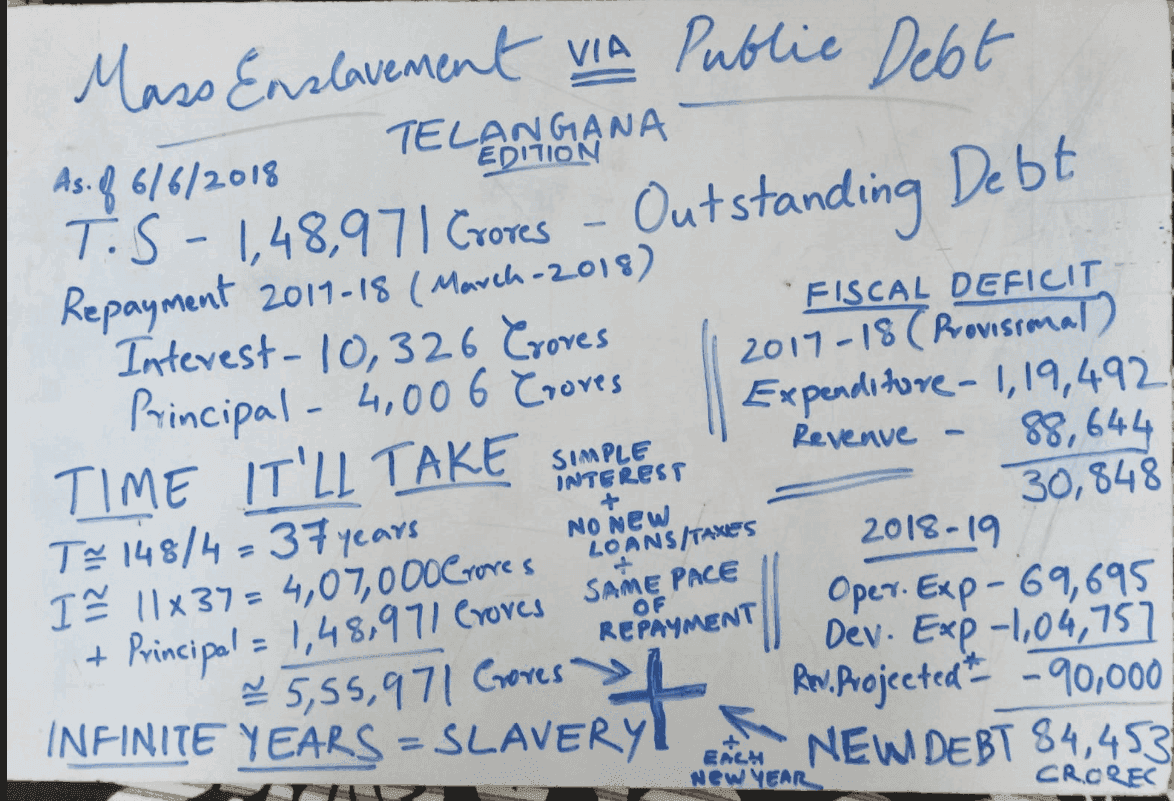 Mass Enslavement VIA Public Debt
TELANGANA
EDITION
As. of 6/6/2018
T.S - 1,48,971 Crores - Outstanding Debt
Repayment 2017-18 (March-2018)
Interest - 10,326 Crores
Principal - 4,006 Crores
FISCAL DEFICIT
2017-18 (Provisional)
Expenditure - 1,19,492
Revenue - 88,644
30,848
TIME IT'LL TAKE
T ≅ 148/4 = 37 years
I ≅ 11 x 37 = 4,07,000 Crores
+ Principal = 1,48,971 Crores
≅ 5,55,971 Crores
SIMPLE
INTEREST
+
NO NEW
LOANS/TAXES
+
SAME PACE
OF
REPAYMENT
2018-19
Oper. Exp - 69,695
Dev. Exp - 1,04,757
Rev. Projected* - -90,000
NEW DEBT 84,453
CROREC
+
+
EACH
NEW YEAR
INFINITE YEARS = SLAVERY